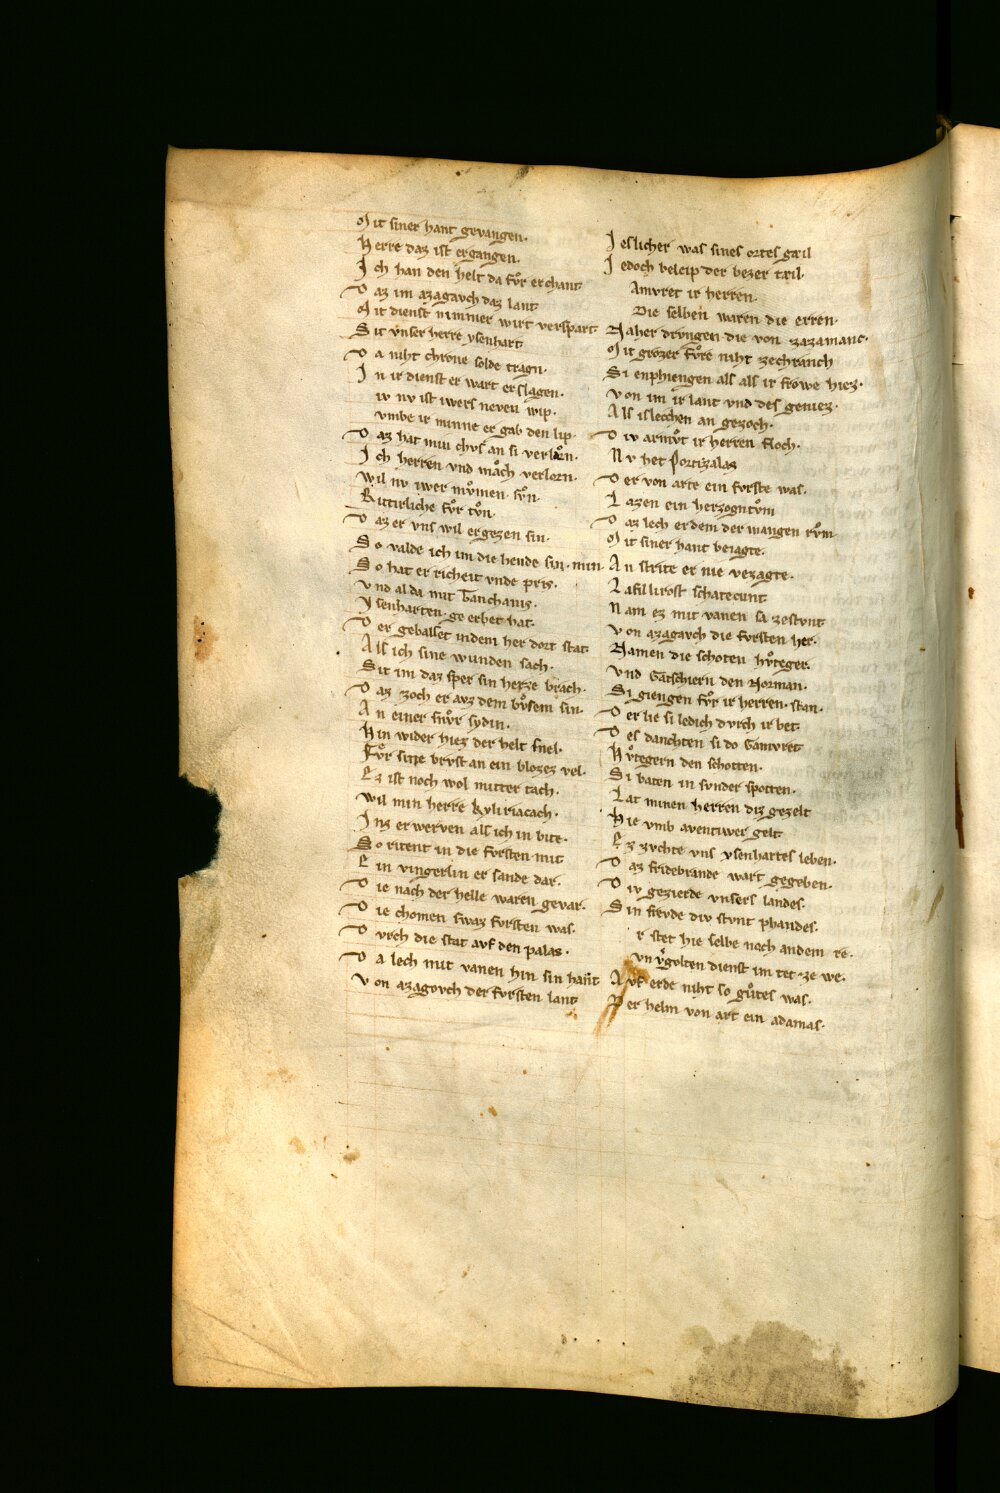 Mit siner hant gevangen.
Herre daz ist ergangen.
Ich han den helt da fůr erchant
Daz im azagavch daz lant
Mit dienst nimmer wirt verspart
Sit vnser herre ysenhart
Da niht chrone solde tragn.
In ir dienst er wart erslagen.
iv nv ist iwers neven wip.
vmbe ir minne er gab den lip.
Daz hat min chvs an si verlorn.
Ich herren vnd mach verlorn.
Wil nv iwer mvmen svn.
Ritterliche fůr tvn
Daz er vns wil ergezen sin.
So valde ich im die hende sin. min.
So hat er richeit vnde pris.
vnd al da mit Tanchanis.
Ysenharten geerbet hat.
Der geballset indem her dort stat
Als ich sine wunden sach.
Sit im daz sper sin herze brach.
Daz zoch er avz dem bvsem sin.
An einer snvr sydin.
Hin wider hiez der helt snel.
Fůr sine brvst an ein blozez vel.
Ez ist noch wol mitter tach.
Wil min herre kyliriacach.
Inz erwerven als ich in bite.
So ritent in die fvrsten mit
Ein vingerlin er sande dar.
Die nach der helle waren gevar.
Die chomen swaz fvrsten was.
Dvrch die stat avf den palas.
Da lech mit vanen hin sin hant
Von azagovch der fvrsten lant
Ieslicher was sines ortes gæil
Iedoch beleip der bezer tæil
Amvret ir herren.
Die selben waren die erren.
Naher drvngen die von zazamanc.
Mit grozer fvre niht ze chranch
Si enphiengen als als ir frowe hiez.
Von im ir lant vnd des geniez.
Als islecchen an gezoch.
Div armvt ir herren floch.
Nv het Portizalas
Der von arte ein fvrste was.
Lazen ein herzogntvm
Daz lech er dem der mangen rvm
Mit siner hant beiagte.
An strite er nie vezagte.
Lafillirost schatecunt
Nam ez mit vanen sa zestvnt
Von azagavch die fvrsten her.
Namen die schoten hvteger.
Vnd Gatschiern den Norman.
Si giengen fůr ir herren stan.
Der lie si ledich dvrch ir bet.
Des danchten si do Gamvret
Hvtegern den schotten.
Si baten in svnder spotten.
Lat minen herren diz gezelt
Hie vmb aventiwer gelt
Ez zvchte vns ysenhartes leben.
Daz fridebrande wart gegeben.
Div gezierde vnsers landes.
Sin frevde div stvnt phandes.
r stet hie selbe noch andem re.
vnvgolten dienst im tet ze we.
Avf erde niht so gůtes was.
Der helm von art ein adamas.